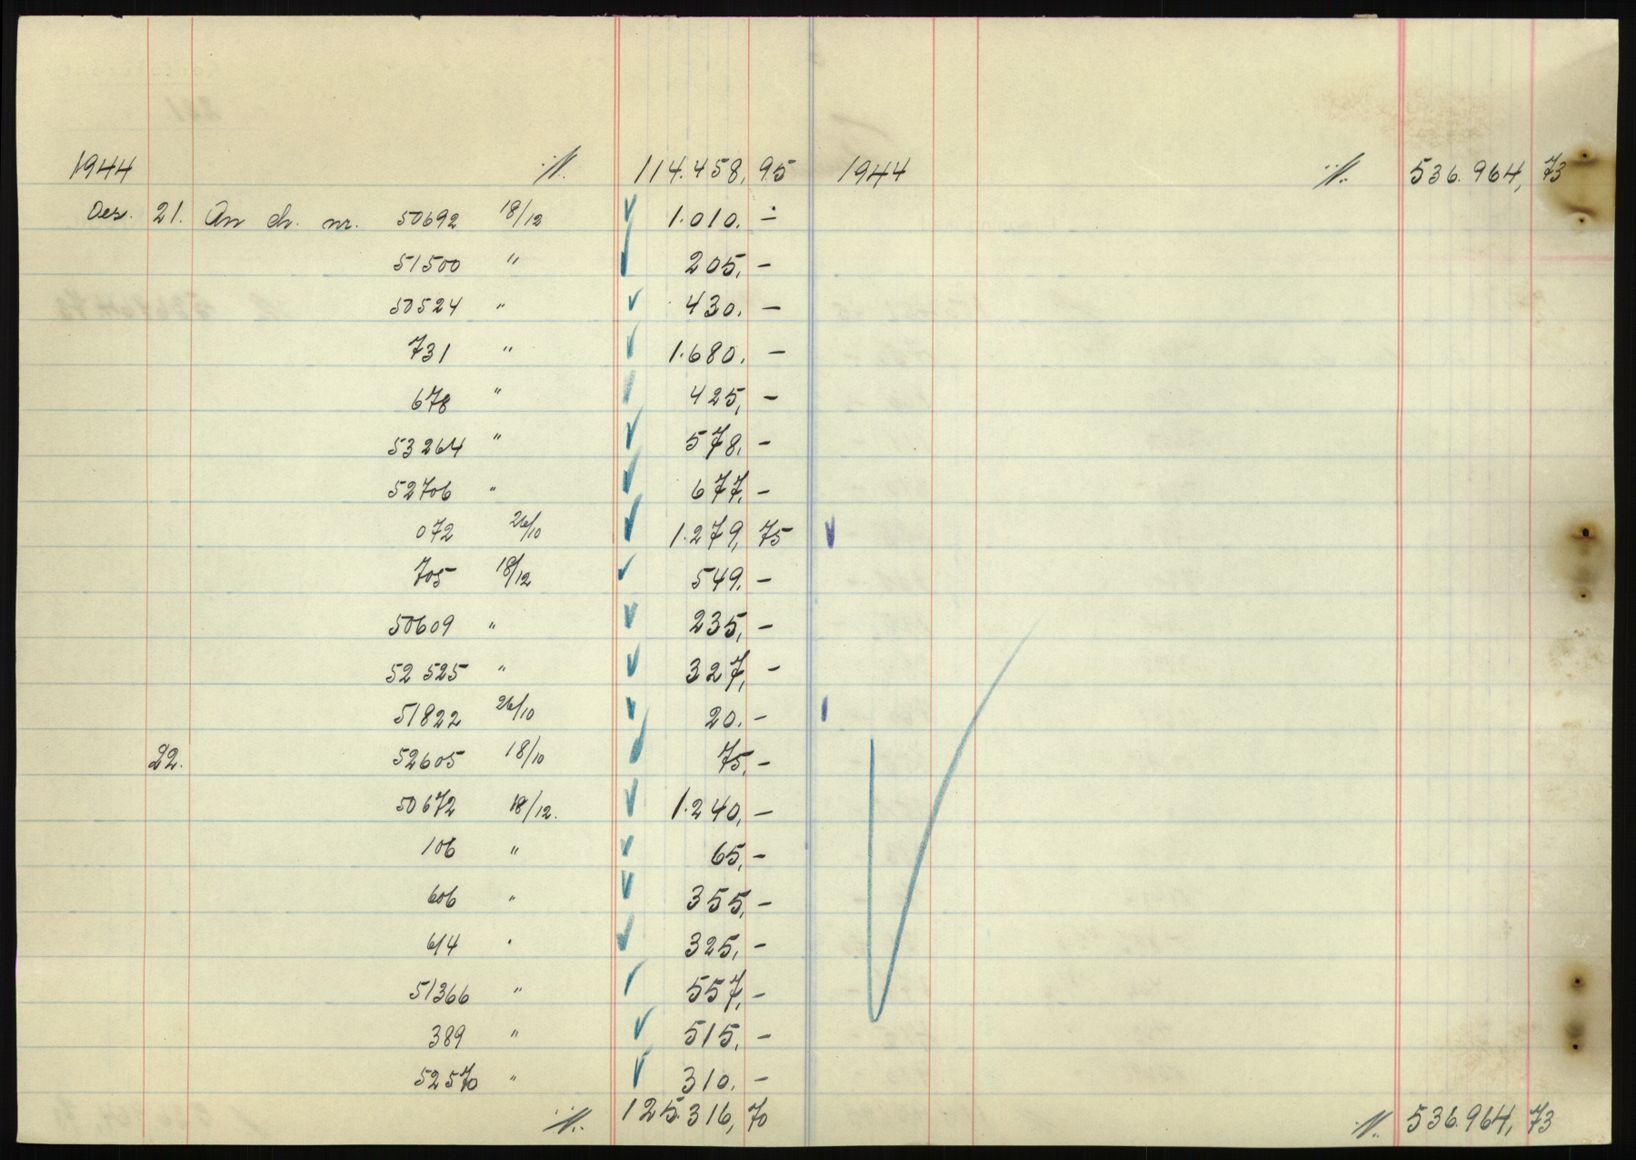 1944 ·/. 114.458,95
Des. 21. An ch. nr. 50692 18/12 1.010.-
51500 " 205,-
50524 " 430.-
731 " 1.680.-
678 " 425,-
53264 " 578,-
52706 " 677,-
072 26/10 1.279,75
705 18/12 549.-
50609 " 235,-
52525 " 327,-
51822 26/10 20.-
22. 52605 18/10 75,-
50672 18/12. 1.240,-
106 " 65,-
606 " 355,-
614 " 325,-
51366 " 557,-
389 " 515,-
52570 " 310.-
·/. 125.316,70
1944 ·/. 536.964,73
·/. 536.964,73